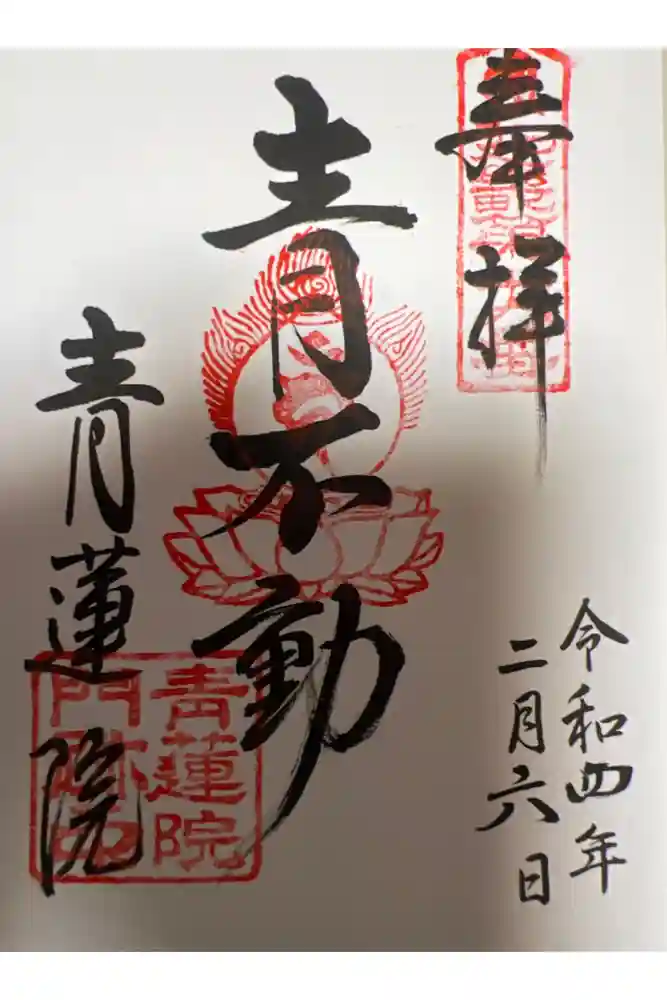 奉拝
令和四年
二月六日
青不動
青蓮院
青蓮院
門跡